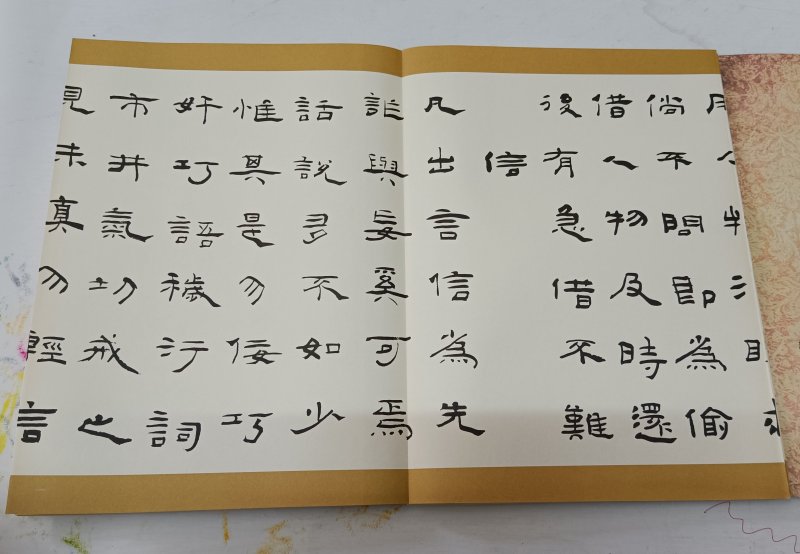 倘不問即為偷
借人物及時還
後有急借不難
信
凡出言信為先
詐與妄奚可焉
話說多不如少
惟其是勿佞巧
奸巧語穢污詞
市井氣切戒之
見未真勿輕言